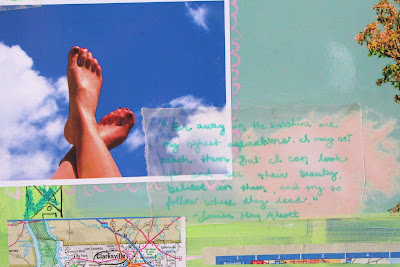 "Far away in the sunshine are
my highest aspirations. I may not
reach them, but I can look
up and see their beauty,
believe in them, and try to
follow where they lead."
-Louisa May Alcott
Clarksville